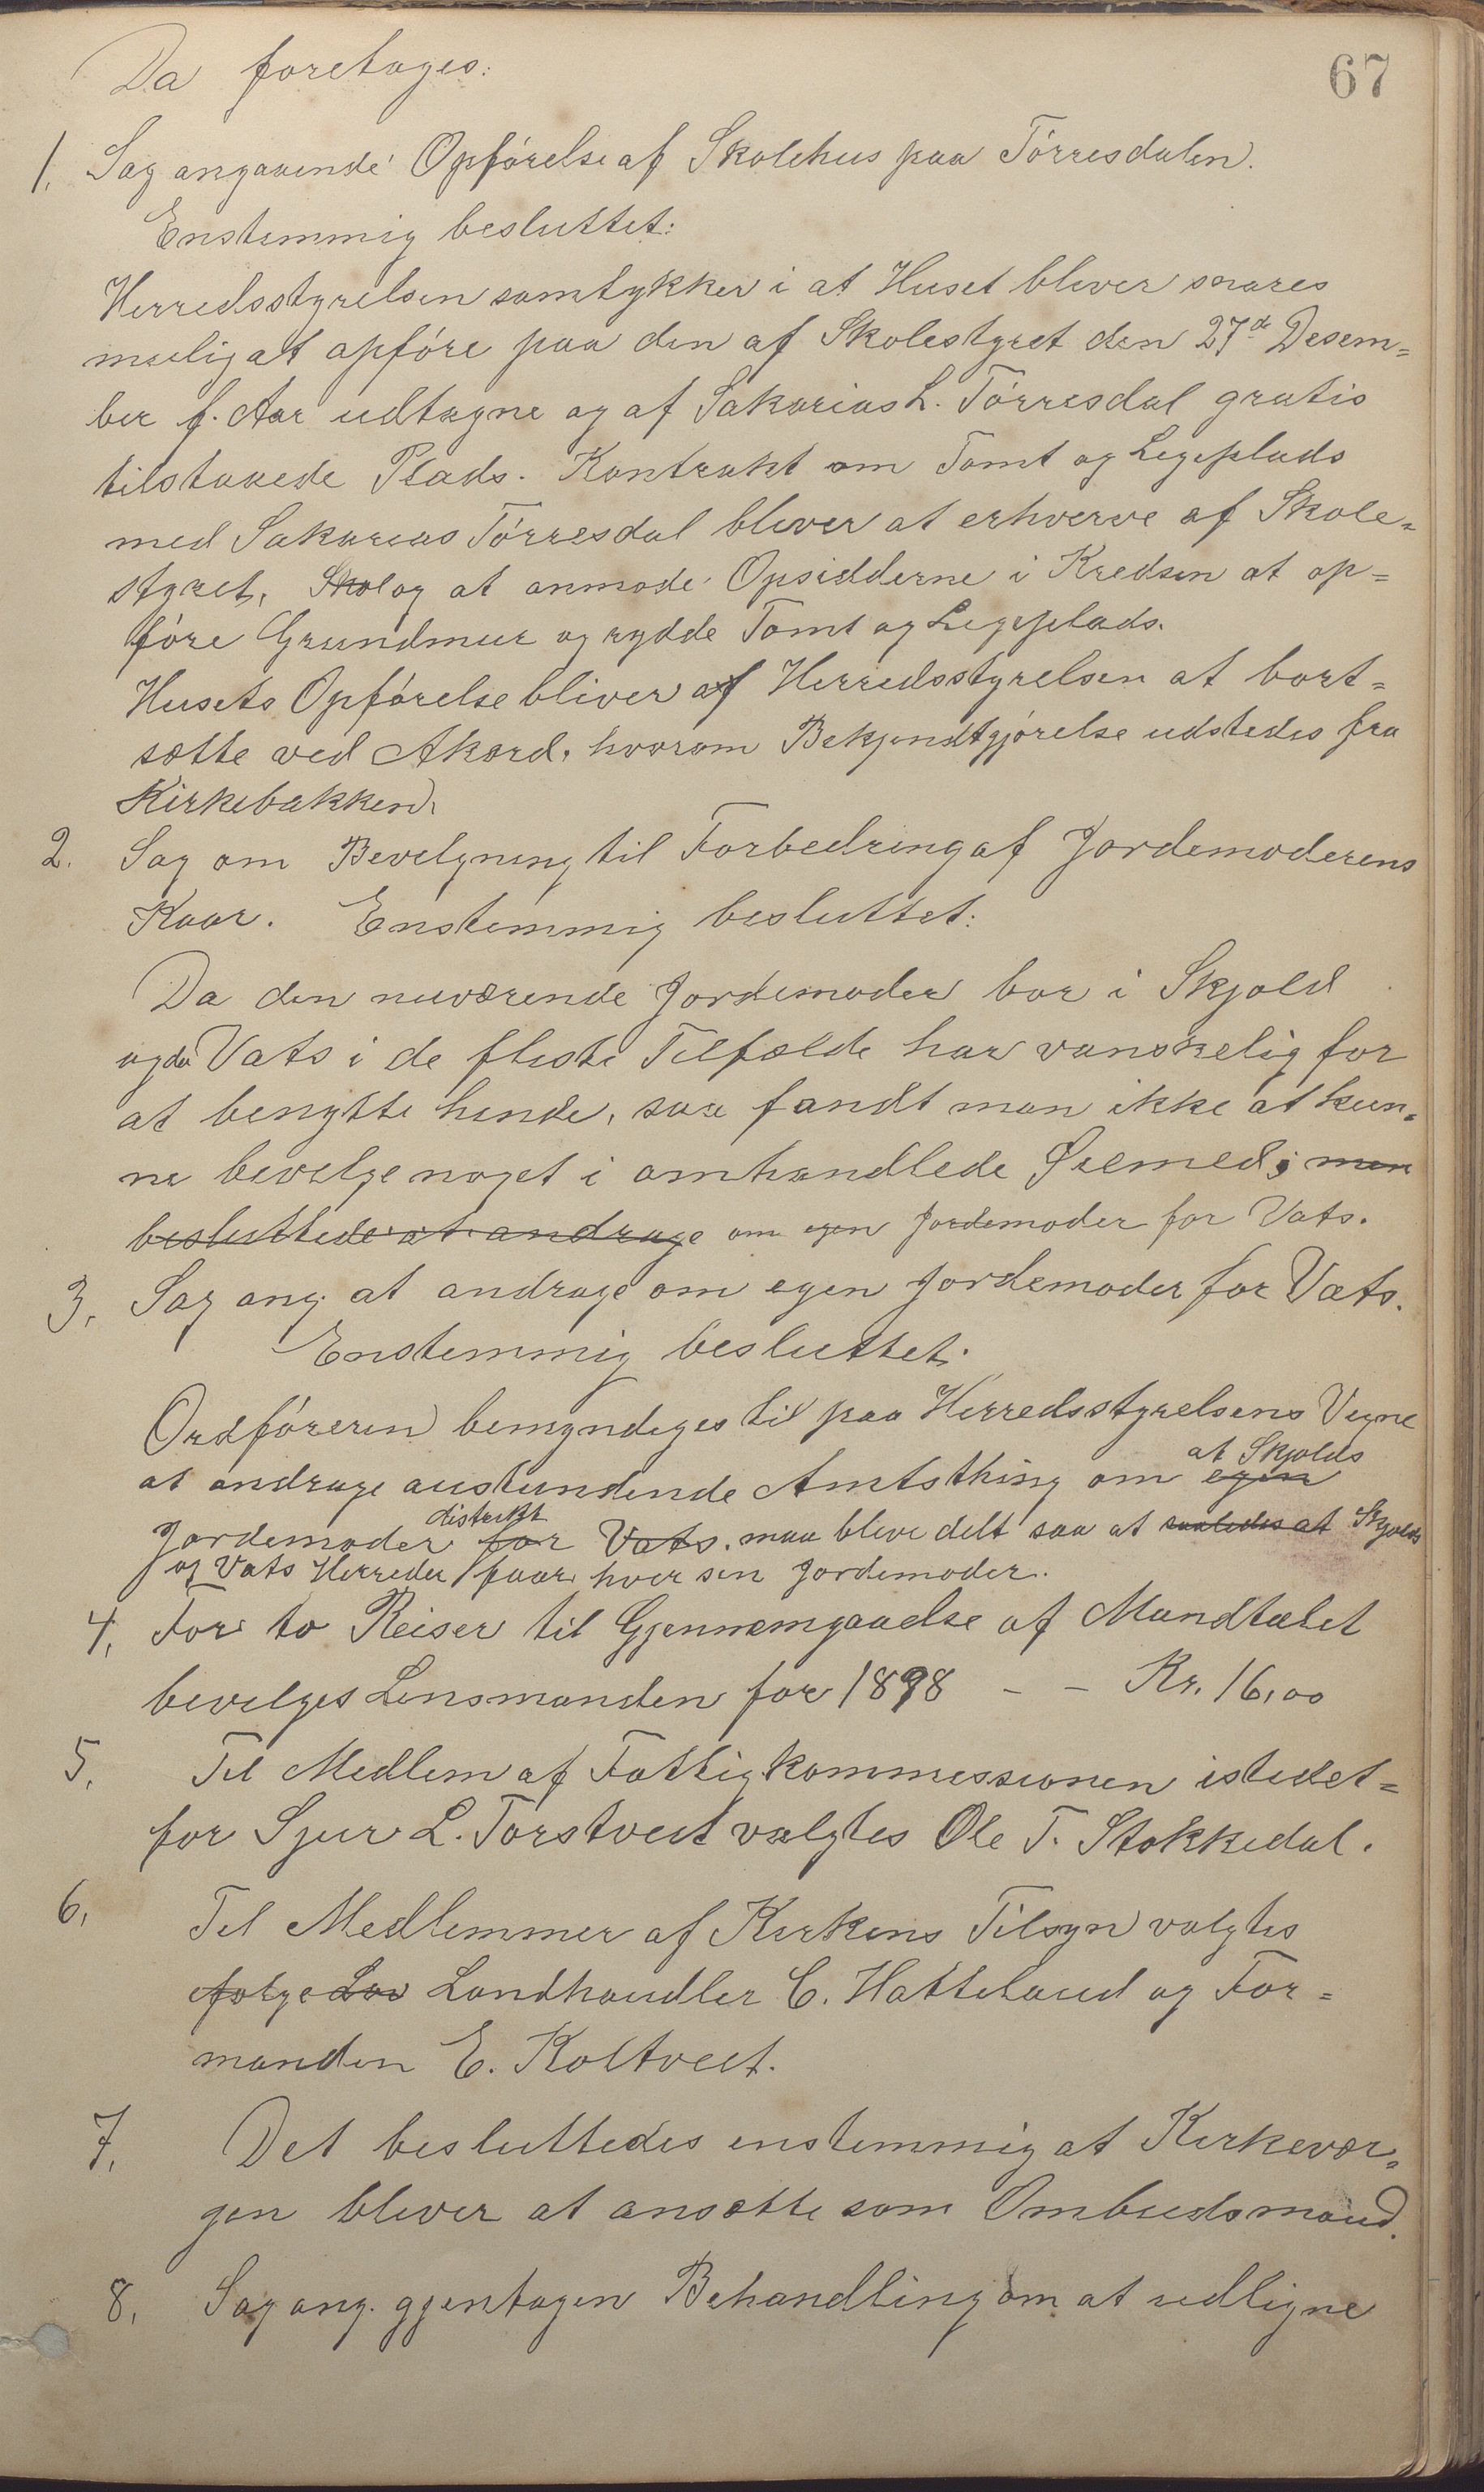 67
Da foretages:
1. Sag angaaende Opførelse af Skolehus paa Tørresdalen.
Enstemmig besluttet:
Herredsstyrelsen samtykker i at Huset bliver snares
muligat opføre paa den af Skolestyret den 27de Desem=
ber f. Aar udtagne og af Sakarias L. Tørresdal gratis
tilstaaede Plads. Kontrakt om Tomt og Legeplads
med Sakarias Tørresdal bliver at erhverve af Skole=
styret, Skol og at anmode Opsidderne i Kredsen at op=
føre Grundmur og rydde Tomt og Legeplads.
Husets Opførelse bliver af Herredsstyrelsen at bort=
sætte ved Akord, hvorom Bekjendtgjørelse udstedes fra
Kirkebakken.
2. Sag om Bevelgning til Forbedring af Jordemoderens
Kaar. Enstemmig besluttet:
Da den nuværende Jordemoder bor i Skjold
og da Vats i de fleste Tilfælde har vanskelig for
at benytte hende, saa fandt man ikke at kun=
ne bevelge noget i omhandlede Øiemed; men
besluttede at andrage om egen Jordemoder for Vats.
3. Sag ang. at andrage om egen Jordemoder for Vats.
Enstemmig besluttet:
Ordføreren bemyndiges til paa Herredsstyrelsens Vegne
at Skjolds
at andrage anstundende Amtsthing om egen
distrikt
Jordemoder for Vats. maa blive delt saa at saaledes at Skjolds
og Vats Herreder faar hver sin Jordemoder.
4. For to Reiser til Gjennemgaaelse af Mandtalet
bevelges Lensmanden for 1898 - - Kr. 16,00
5. Til Medlem af Fattigkommissionen istedet=
for Sjur L. Torstveit valgtes Ole T. Stokkedal.
6. Til Medlemmer af Kirkens Tilsyn valgtes
ifølge Lov Landhandler C. Hatteland og For=
manden E. Koltveit.
7. Det besluttedes enstemmig at Kirkevær=
gen bliver at ansætte som Ombudsmand.
8. Sag ang. gjentagen Behandling om at udligne